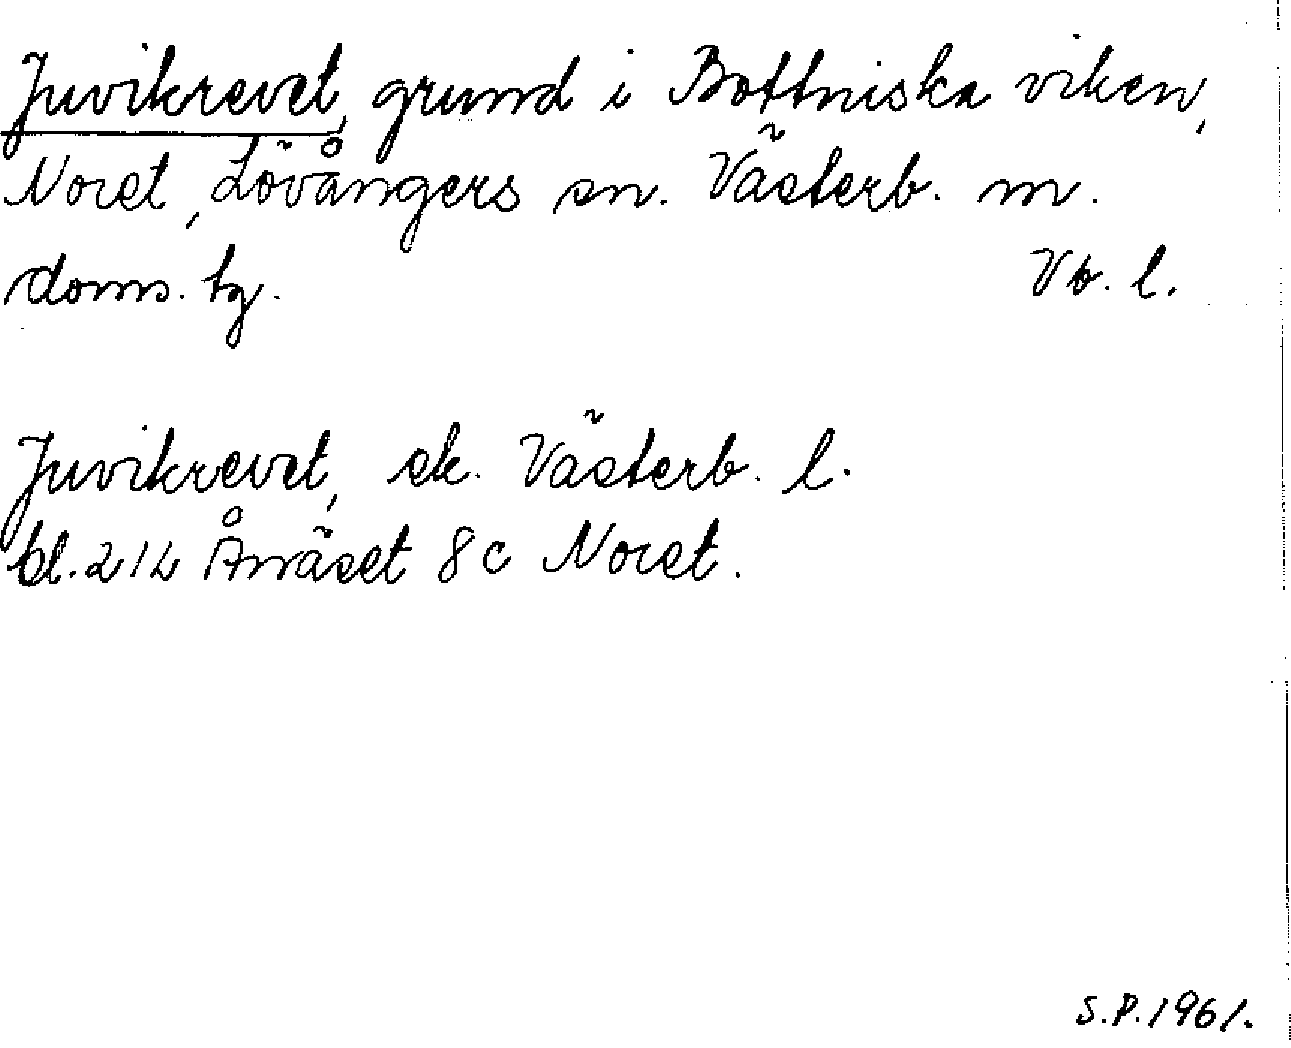 Juvikrevet, grund i Bottniska viken,
Noret, Lövångers sn. Västerb. m.
doms. tg. Vb. l.
Juvikrevet, ek. Västerb. l.
bl. 212 Ånäset 8c Noret.
S.P. 1961.